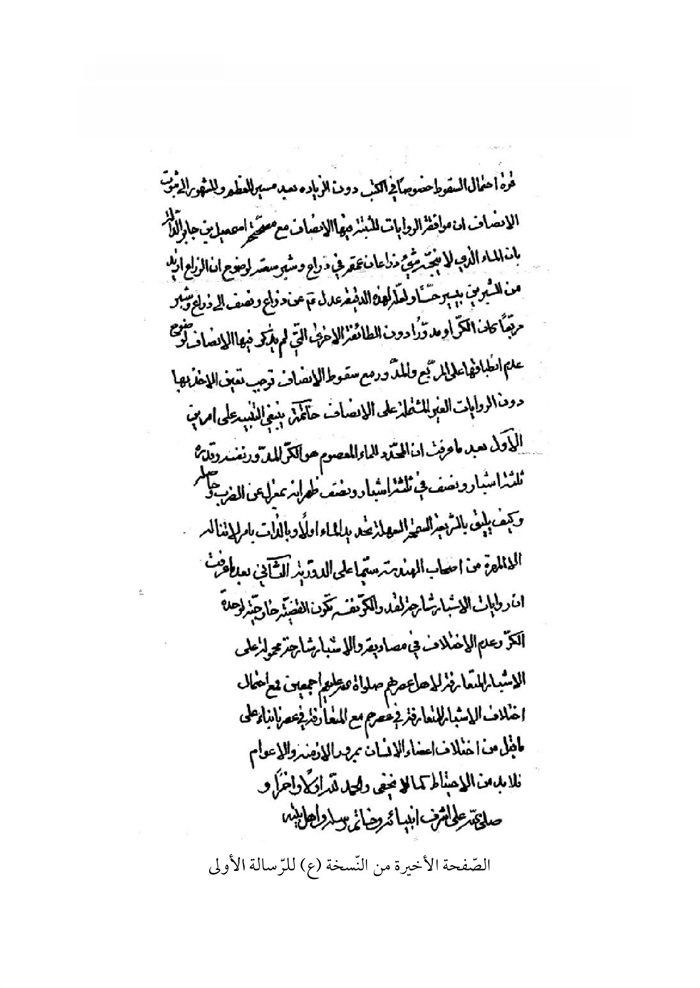 قوة احتمال السقوط خصوصاً في الكتب دون الزياده بعيد مسير المعظم والمشهور الى ثبوت
الانصاف ان موافقة الروايات المثبتة فيها الانصاف مع صحيحة اسمعيل بن جابر
بان الماء الذي لا ينجسه شئ ذراعان عمقه في ذراع وشبر سعته لوضوح ان الذراع ازيد
من الشبرين بيسير حسّاً ولعلّه لهذه الدقيقة عدل عن ذراع ونصف الى ذراع وشبر
مربّعاً كان الكرّ او مدوّراً دون الطائفة الاخرى التي لم يذكر فيها الانصاف لوضوح
عدم انطباقها على المربّع والمدّور مع سقوط الانصاف توجب تعيّن الاخذ بها
دون الروايات الغير المشتملة على الانصاف خاتمة ينبغي التنبيه على امرين
الاوّل بعد ما عرفت ان المحدّد للماء المعصوم هو الكرّ المدّور نفسه وقدره
ثلثة اشبار ونصف في ثلثة اشبار ونصف ظهر انه بمعزل عن الضرب وحاصله
وكيف يليق بالشريعة السمحة السهلة تحديد الماء اولاً وبالذات بامر لا تناله
الا المهرة من اصحاب الهندسة سيّما على الدوريّة الثّاني بعد ما عرفت
ان روايات الاشبار شارحة لقدر الكرّ نفسه تكون القضيّة خارجيّة لوحدة
الكرّ وعدم الاختلاف في مصاديقه والاشبار شارحة محمولة على
الاشبار المتعارفة لاهل عصرهم صلواة عليهم اجمعين فمع احتمال
اختلاف الاشبار المتعارفة في عصرهم مع المتعارفة في عصرنا بناء على
ما قيل من اختلاف اعضاء الانسان بمرور الازمنه والاعوام
فلا بد من الاحتياط كما لا يخفى والحمد لله اوّلاً واخراً و
صلى على اشرف انبيائه وخاتم رسله واهل بيته
الصّفحة الأخيرة من النّسخة (ع) للرّسالة الأولى